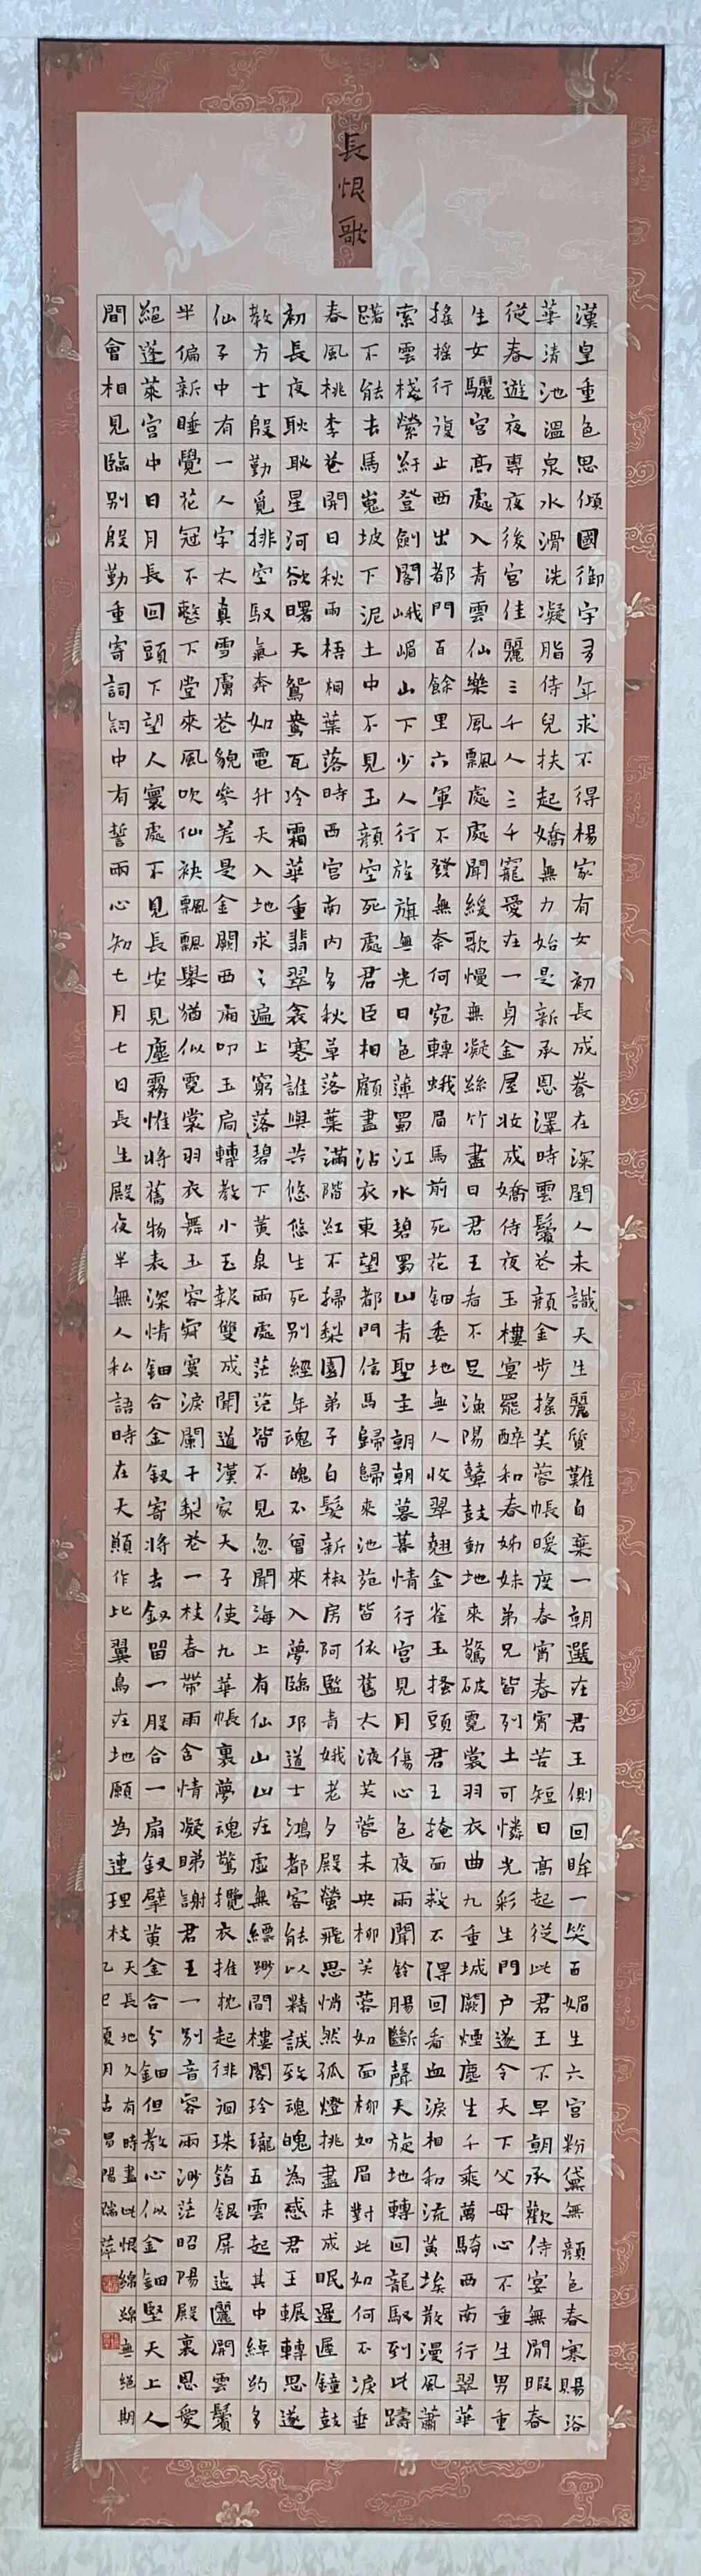 長恨歌
漢皇重色思傾國御宇多年求不得楊家有女初長成養在深閨人未識天生麗質難自棄一朝選在君王側回眸一笑百媚生六宮粉黛無顏色春寒賜浴
華清池溫泉水滑洗凝脂侍兒扶起嬌無力始是新承恩澤時雲鬢花顏金步搖芙蓉帳暖度春宵春宵苦短日高起從此君王不早朝承歡侍宴無閒暇春
從春遊夜專夜後宮佳麗三千人三千寵愛在一身金屋妝成嬌侍夜玉樓宴罷醉和春姊妹弟兄皆列土可憐光彩生門户遂令天下父母心不重生男重
生女驪宮高處入青雲仙樂風飄處處聞緩歌慢舞凝絲竹盡日君王看不足漁陽鼙鼓動地來驚破霓裳羽衣曲九重城闕煙塵生千乘萬騎西南行翠華
搖搖行復止西出都門百餘里六軍不發無奈何宛轉蛾眉馬前死花鈿委地無人收翠翹金雀玉搔頭君王掩面救不得回看血淚相和流黃埃散漫風蕭
索雲棧縈紆登劍閣峨嵋山下少人行旌旗無光日色薄蜀江水碧蜀山青聖主朝朝暮暮情行宮見月傷心色夜雨聞鈴腸斷聲天旋地轉回龍馭到此躊
躇不能去馬嵬坡下泥土中不見玉顏空死處君臣相顧盡沾衣東望都門信馬歸歸來池苑皆依舊太液芙蓉未央柳芙蓉如面柳如眉對此如何不淚垂
春風桃李花開日秋雨梧桐葉落時西宮南內多秋草落葉滿階紅不掃梨園弟子白髮新椒房阿監青娥老夕殿螢飛思悄然孤燈挑盡未成眠遲遲鐘鼓
初長夜耿耿星河欲曙天鴛鴦瓦冷霜華重翡翠衾寒誰與共悠悠生死別經年魂魄不曾來入夢臨邛道士鴻都客能以精誠致魂魄為感君王輾轉思遂
教方士殷勤覓排空馭氣奔如電升天入地求之遍上窮碧落下黃泉兩處茫茫皆不見忽聞海上有仙山山在虛無縹緲間樓閣玲瓏五雲起其中綽約多
仙子中有一人字太真雪膚花貌參差是金闕西廂叩玉扃轉教小玉報雙成聞道漢家天子使九華帳裏夢魂驚攬衣推枕起徘徊珠箔銀屏迤邐開雲鬢
半偏新睡覺花冠不整下堂來風吹仙袂飄飄舉猶似霓裳羽衣舞玉容寂寞淚闌干梨花一枝春帶雨含情凝睇謝君王一別音容兩渺茫昭陽殿裏恩愛
絕蓬萊宮中日月長回頭下望人寰處不見長安見塵霧惟將舊物表深情鈿合金釵寄將去釵留一股合一扇釵擘黃金合分鈿但教心似金鈿堅天上人
間會相見臨別殷勤重寄詞詞中有誓兩心知七月七日長生殿夜半無人私語時在天願作比翼鳥在地願為連理枝天長地久有時盡此恨綿綿無絕期
乙巳夏月古昌陽瑞萍